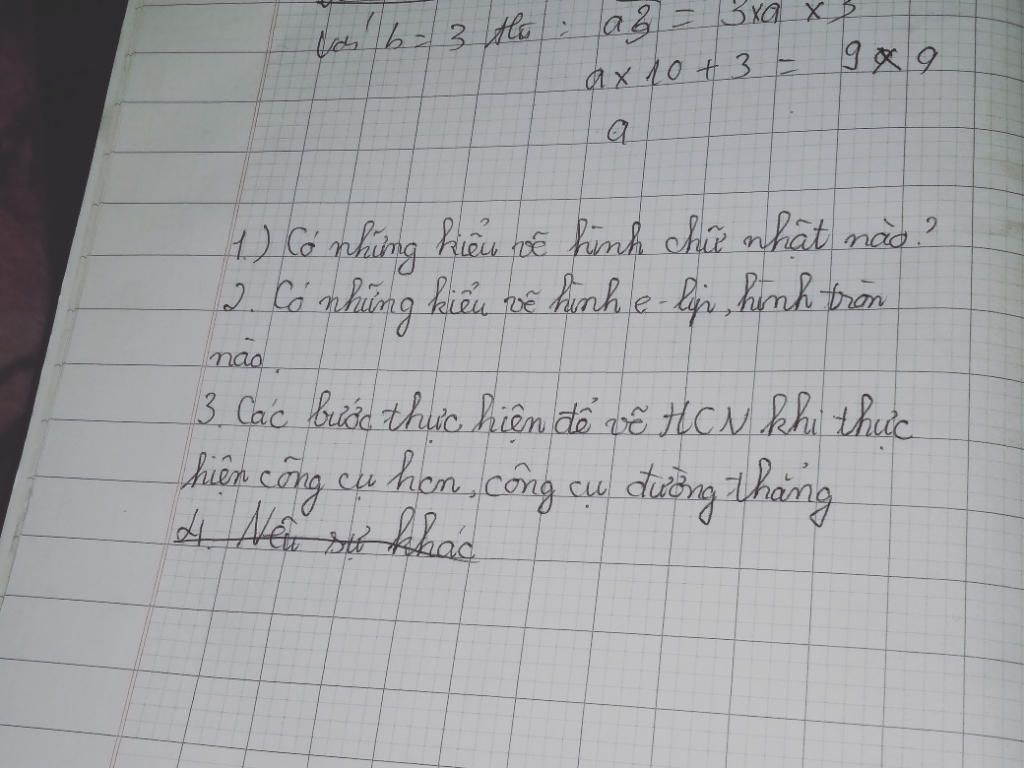 Với b = 3 thì : a3 = 3 x a x 3
a x 10 + 3 = 9 x a
a
1.) Có những kiểu vẽ hình chữ nhật nào?
2. Có những kiểu vẽ hình e-lip, hình tròn
nào.
3. Các bước thực hiện để vẽ HCN khi thực
hiện công cụ hcn, công cụ đường thẳng
4. Nêu sự khác